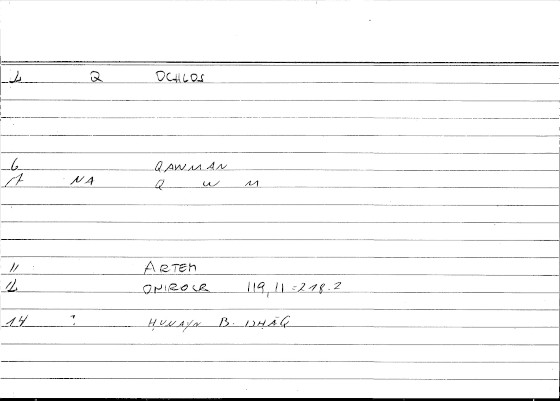 1 Q OCHLOS
6 QAWMAN
7 NA Q W M
11 ARTEM
12 ONIROCR 119,11=218.2
14 : ḤUNAYN B. ISḤĀQ